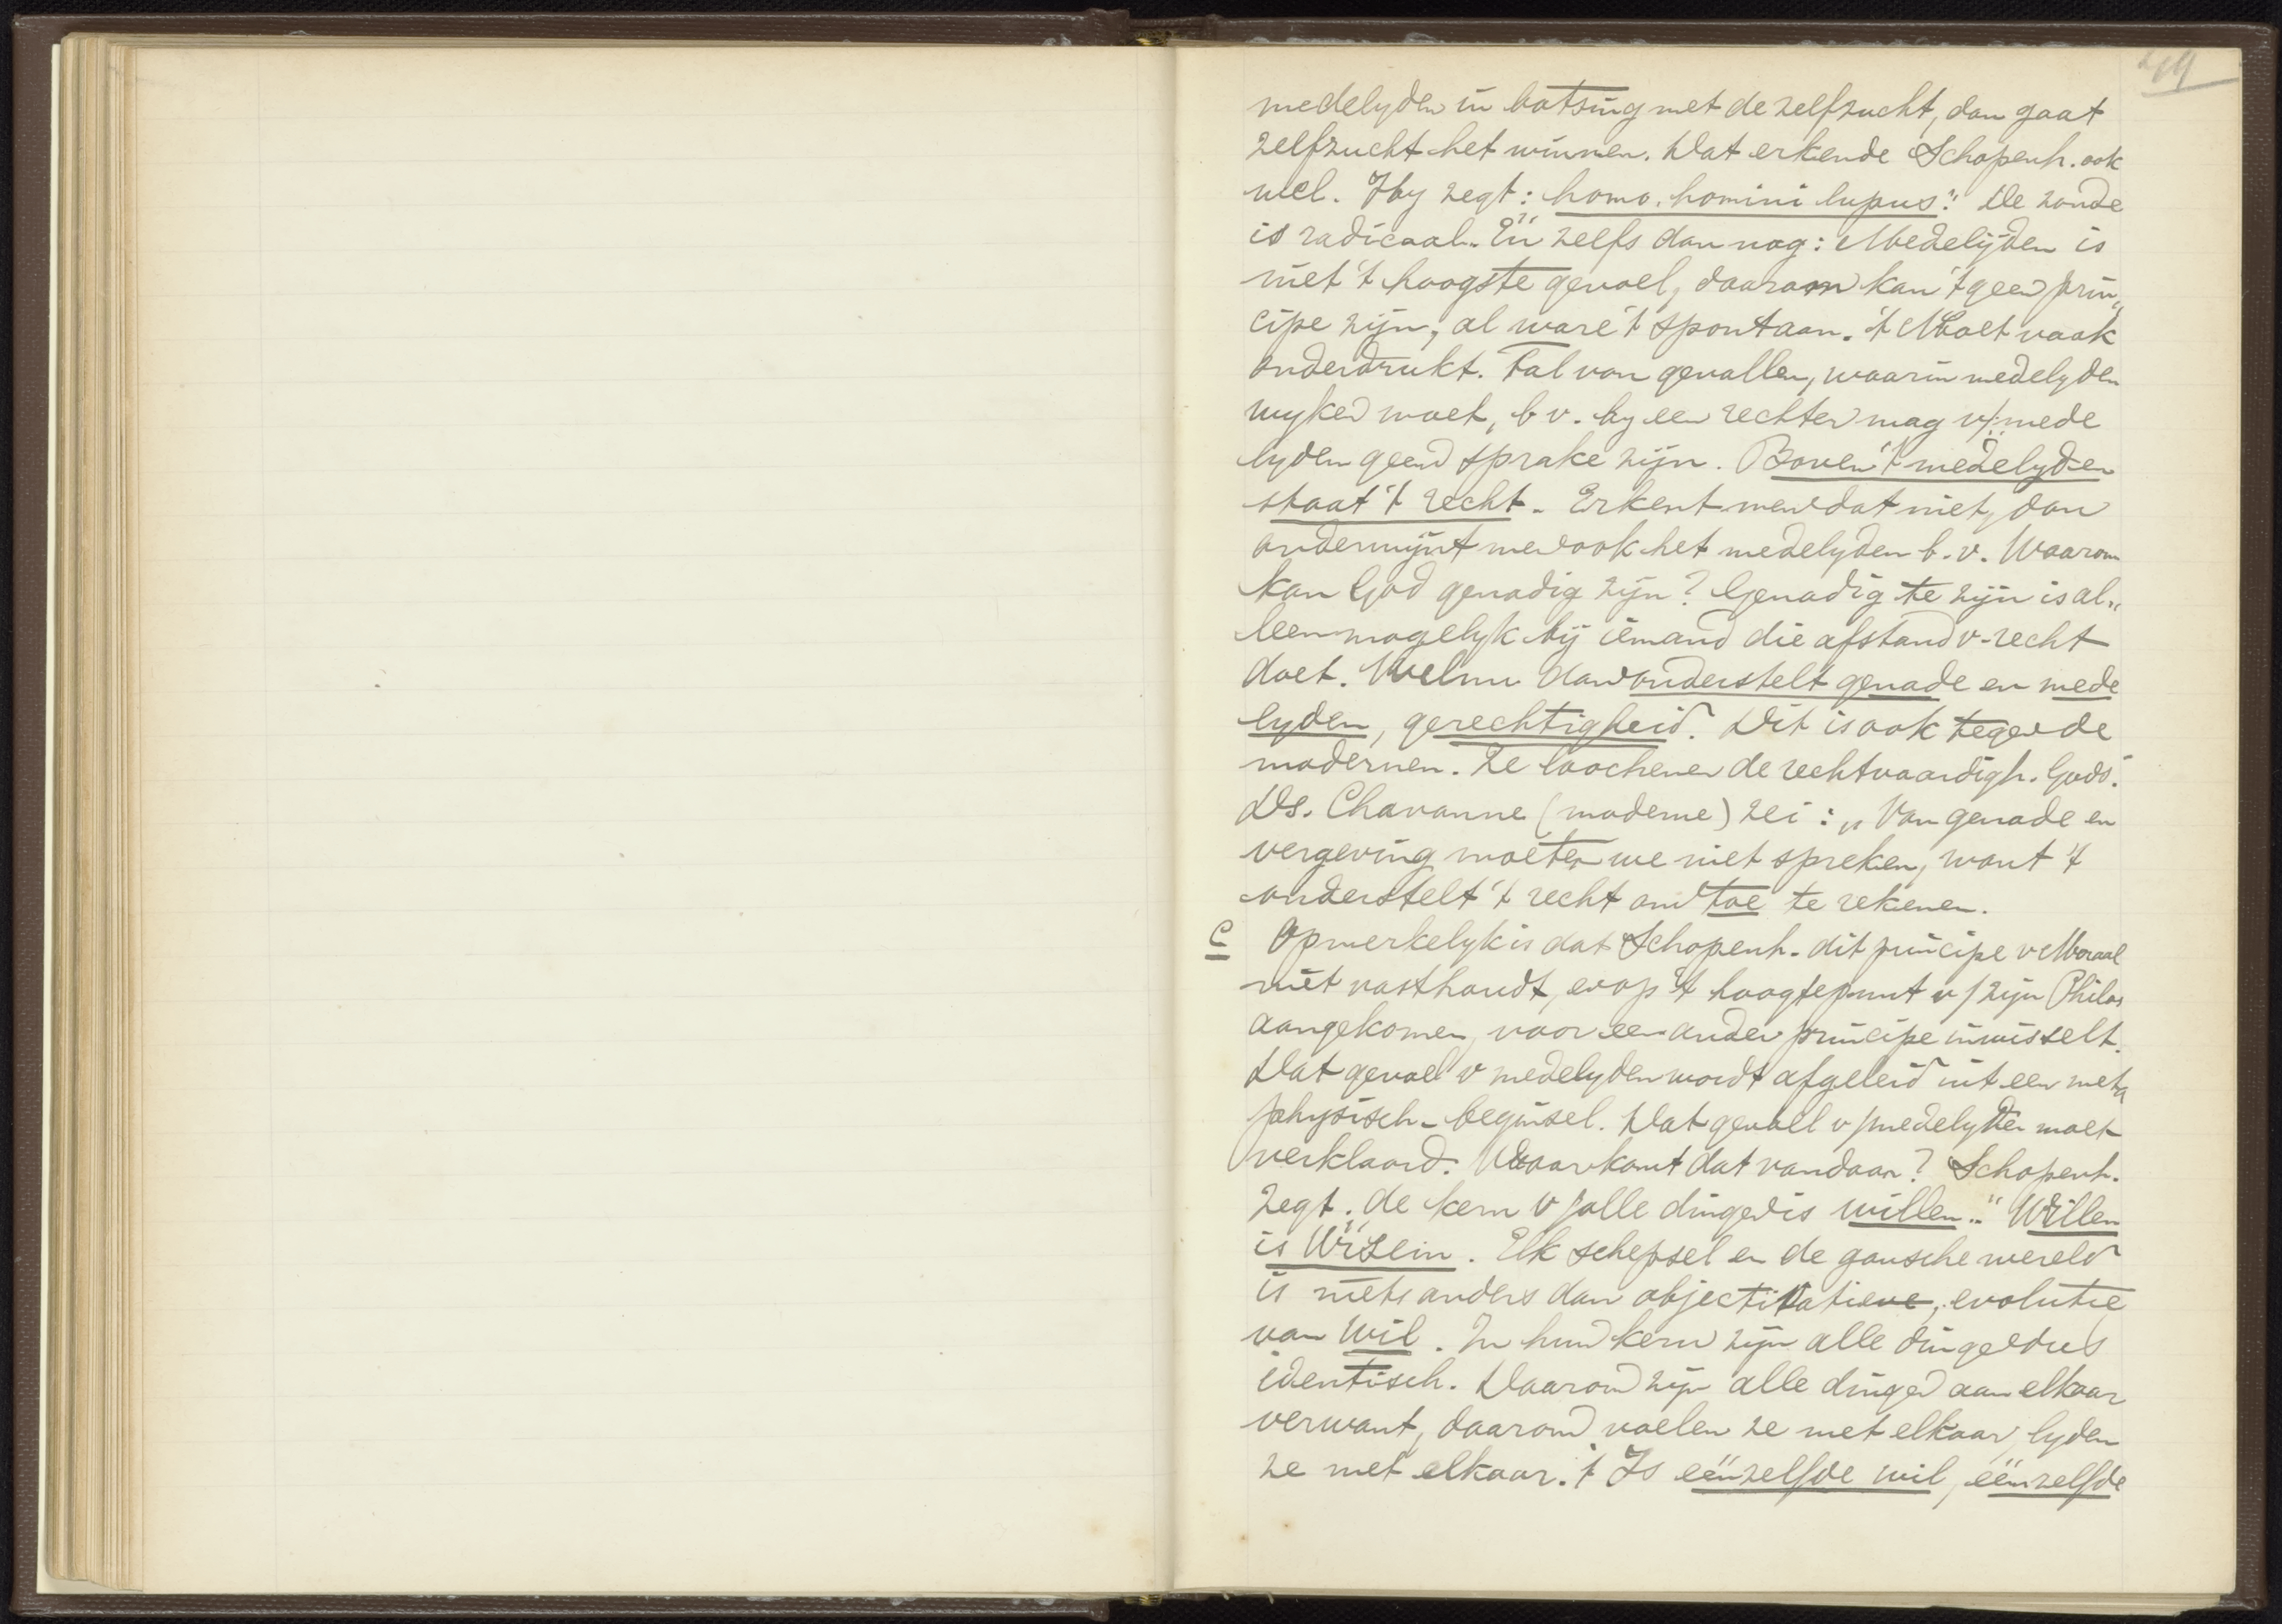 medelyden in botsing met de zelfzucht, dan gaat
zelfzucht het winnen. Dat erkende Schopenh. ook
wel. Hy zegt: homo homini lupus." De zonde
is radicaal. En zelfs dan nog: Medelijden is
niet 't hoogste gevoel, daarom kan 't geen prin„
cipe zijn, al ware 't spontaan. 't Moet vaak
onderdrukt. Tal van gevallen, waarin medelyden
wyken moet, b v. by een rechter mag v/ mede
lyden geen sprake zijn. Boven 't medelyden
staat 't recht. Erkent men dat niet, dan
ondermijnt men ook het medelyden b.v. Waarom
kan God genadig zijn? Genadig te zijn is al„
leen mogelyk bij iemand die afstand v. recht
doet. Welnu dan onderstelt genade en mede
lyden, gerechtigheid. Dit is ook tegen de
modernen. Ze loochenen de rechtvaardigh. Gods.
Ds. Chavanne (moderne) zei: „Van genade en
vergeving moeten we niet spreken, want 't
onderstelt 't recht om toe te rekenen.
C Opmerkelyk is dat Schopenh. dit principe v Moraal
niet vasthoudt, en op 't hoogtepunt v/ zijn Philos
aangekomen, voor een ander principe inwisselt.
Dat gevoel v medelyden wordt afgeleid uit een meta
physisch-beginsel. Dat gevoel v/ medelyden moet
verklaard. Waar komt dat vandaan? Schopenh.
zegt: de kern v/ alle dingen is willen." Willen
is Ur Sein. Elk schepsel en de gansche wereld
is niets anders dan objectivatie, evolutie
van Wil. In hun kern zijn alle dingen dus
identisch. Daarom zijn alle dingen aan elkaar
verwant, daarom voelen ze met elkaar, lyden
ze met elkaar. 't Is eénzelfde wil, eénzelfde